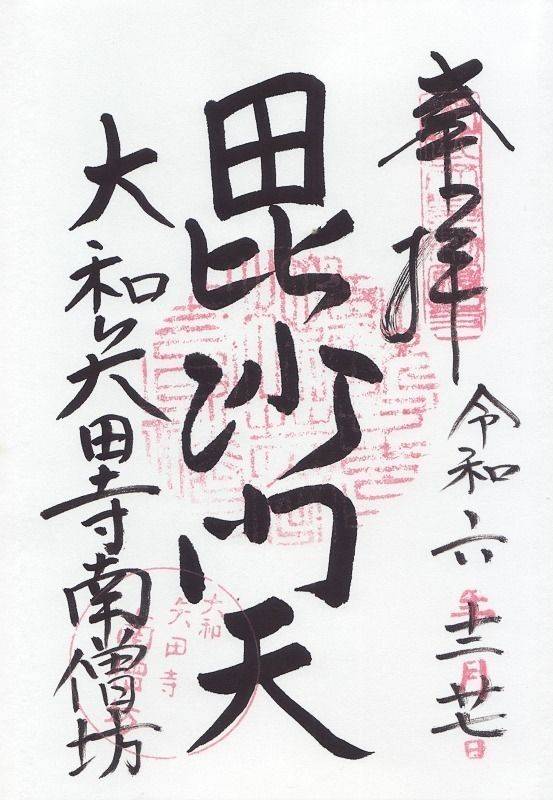 奉拝
令和六年十二月廿七日
毘沙門天
大和矢田寺南僧坊
大和
矢田寺